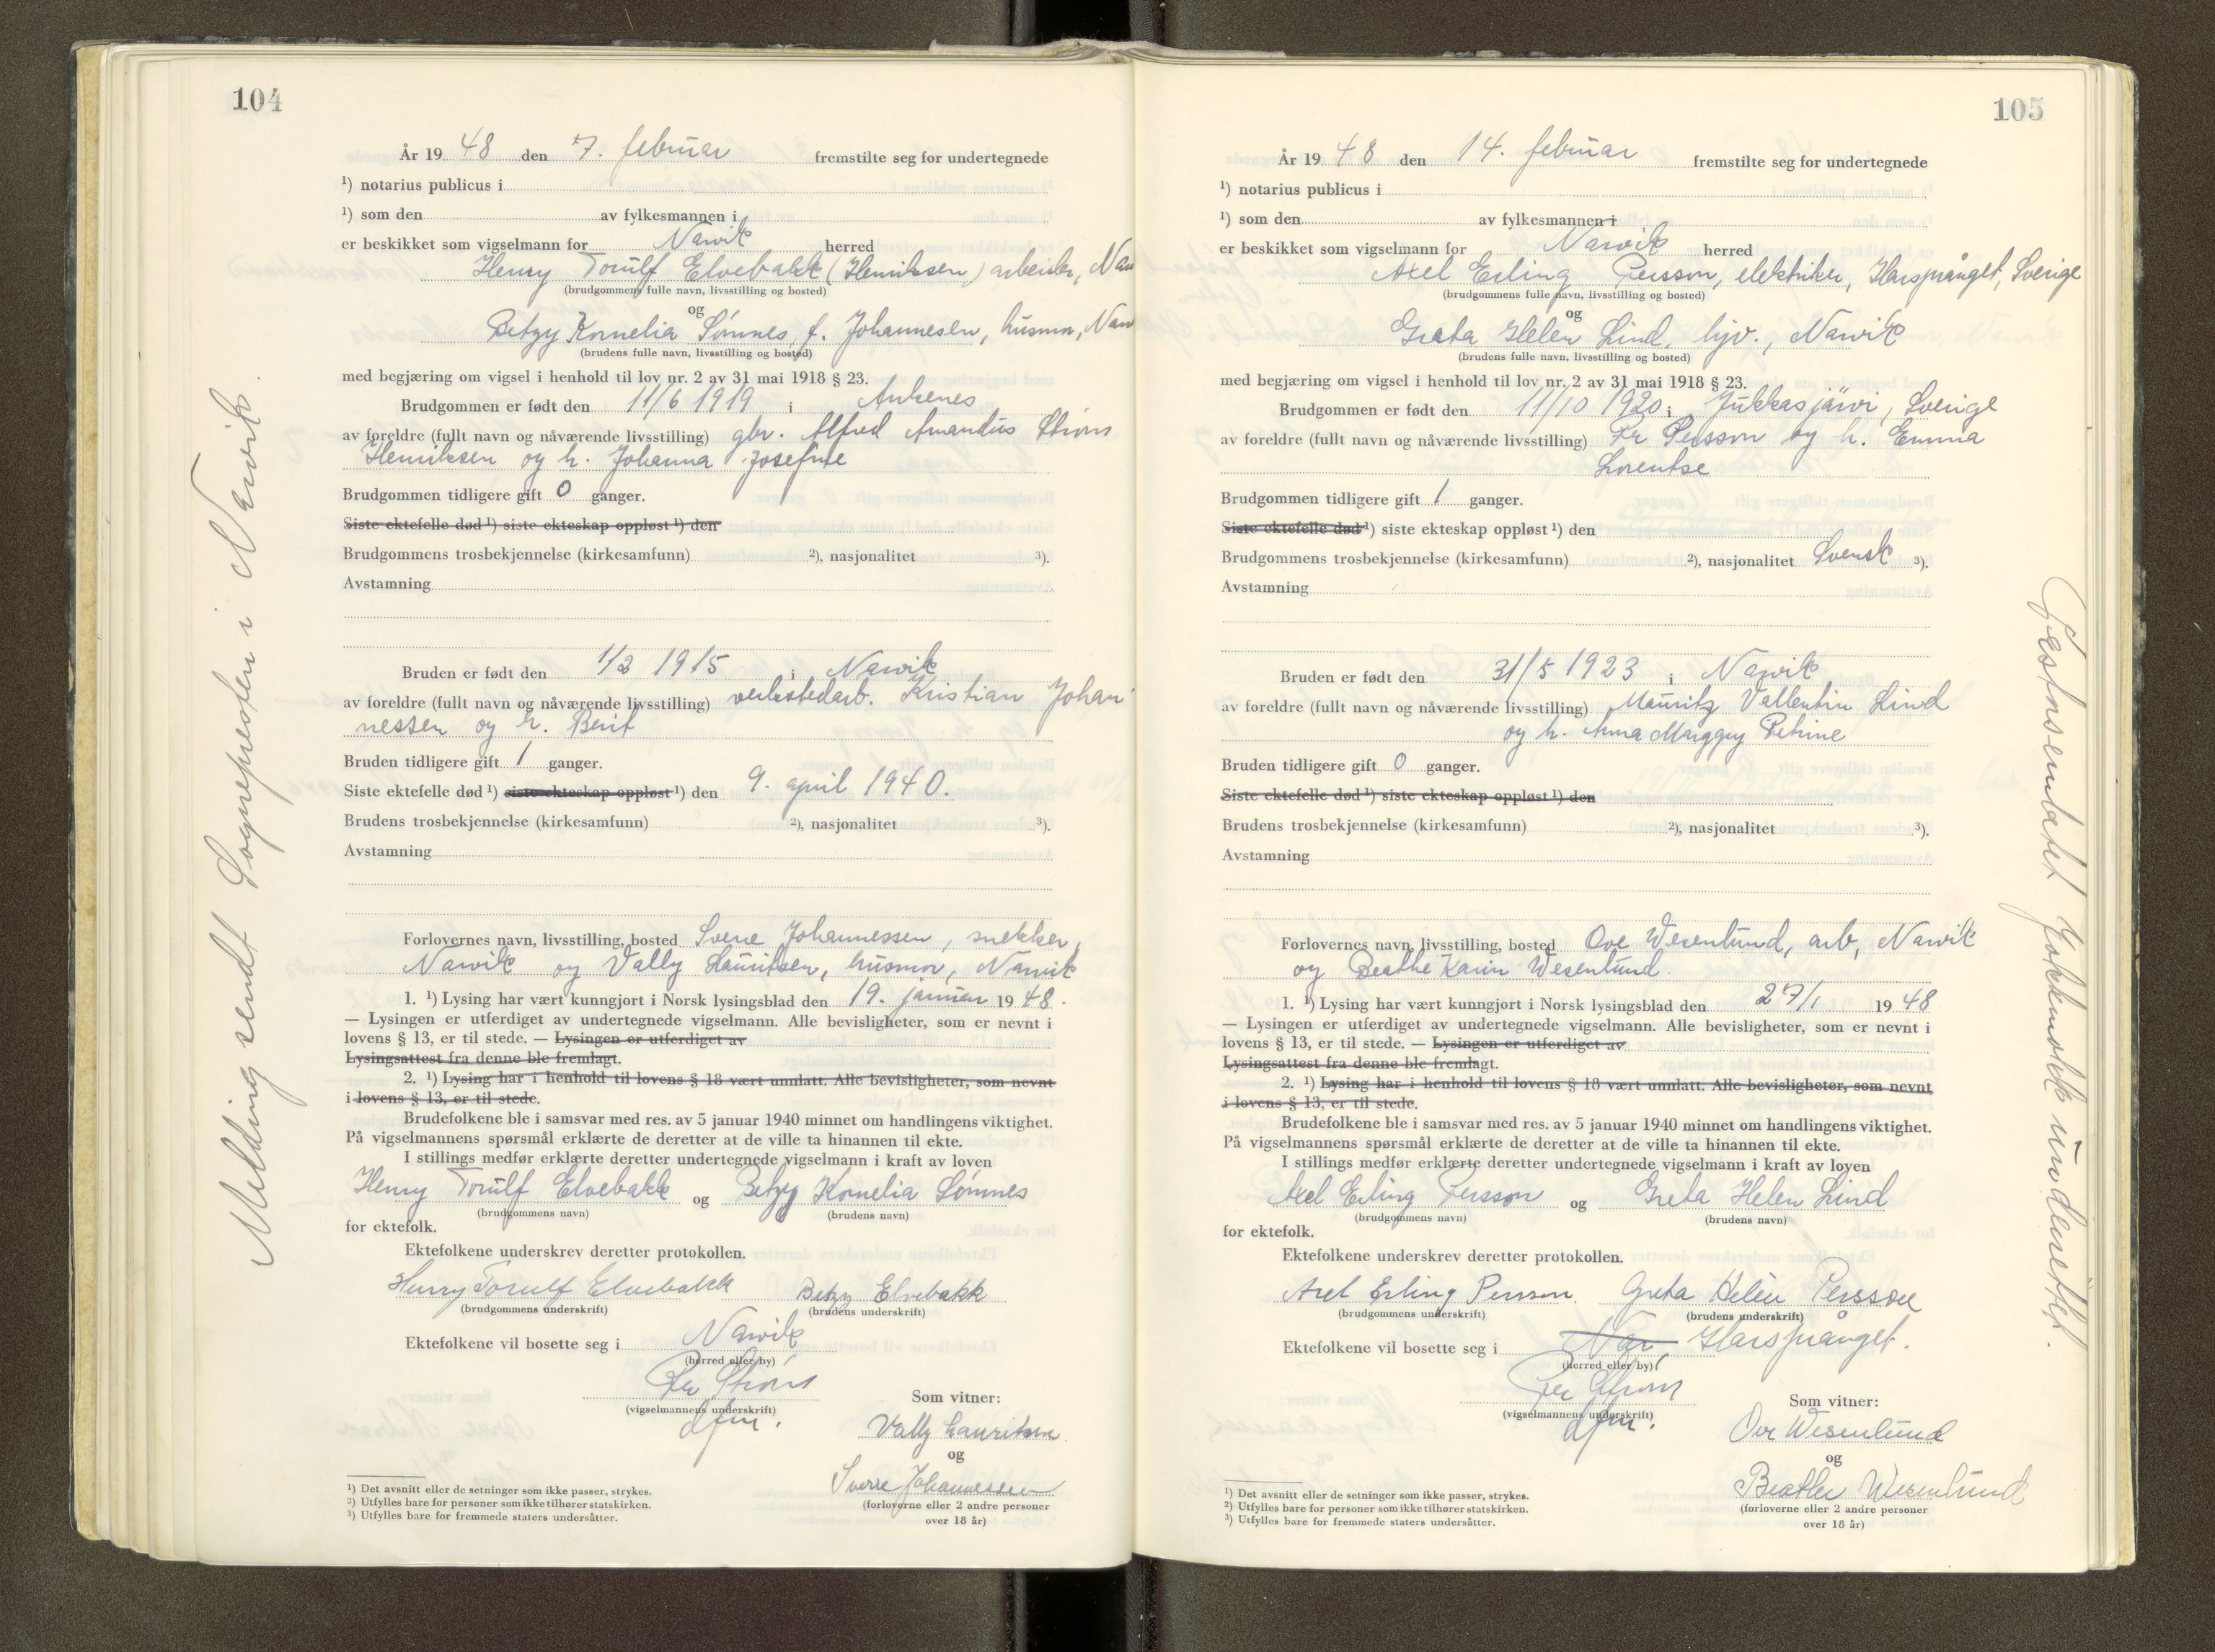 104
År 19 48 den 7. februar fremstilte seg for undertegnede
¹) notarius publicus i
¹) som den av fylkesmannen i
er beskikket som vigselmann for Narvik herred
Henry Torulf Elvebakk (Henriksen) arbeider, Nar
(brudgommens fulle navn, livsstilling og bosted)
og
Betzy Kornelia Sómnes, f. Johannesen, husmor, Narv
(brudens fulle navn, livsstilling og bosted)
med begjæring om vigsel i henhold til lov nr. 2 av 31 mai 1918 § 23.
Brudgommen er født den 11/6 1919 i Ankenes
av foreldre (fullt navn og nåværende livsstilling) gbr. Alfred Amandus Strøm
Henriksen og h. Johanna Josefine
Brudgommen tidligere gift 0 ganger.
Siste ektefelle død ¹) siste ekteskap oppløst ¹) den
Brudgommens trosbekjennelse (kirkesamfunn) ²), nasjonalitet ³).
Avstamning
Bruden er født den 1/2 1915 i Narvik
av foreldre (fullt navn og nåværende livsstilling) verkstedarb. Kristian Johan
nessen og h. Berit
Bruden tidligere gift 1 ganger.
Siste ektefelle død ¹) siste ekteskap oppløst ¹) den 9. april 1940.
Brudens trosbekjennelse (kirkesamfunn) ²), nasjonalitet ³).
Avstamning
Forlovernes navn, livsstilling, bosted Sverre Johannessen, snekker,
Narvik og Vally Lauritsen, husmor, Narvik
1. ¹) Lysing har vært kunngjort i Norsk lysingsblad den 19. januar 19 48.
— Lysingen er utferdiget av undertegnede vigselmann. Alle bevisligheter, som er nevnt i
lovens § 13, er til stede. — Lysingen er utferdiget av
Lysingsattest fra denne ble fremlagt.
2. ¹) Lysing har i henhold til lovens § 18 vært unnlatt. Alle bevisligheter, som nevnt
i lovens § 13, er til stede.
Brudefolkene ble i samsvar med res. av 5 januar 1940 minnet om handlingens viktighet.
På vigselmannens spørsmål erklærte de deretter at de ville ta hinannen til ekte.
I stillings medfør erklærte deretter undertegnede vigselmann i kraft av loven
Henry Torulf Elvebakk og Betzy Kornelia Sómnes
(brudgommens navn) (brudens navn)
for ektefolk.
Ektefolkene underskrev deretter protokollen.
Henry Torulf Elvebakk Betzy Elvebakk
(brudgommens underskrift) (brudens underskrift)
Ektefolkene vil bosette seg i Narvik
(herred eller by)
Per Strøm
(vigselmannens underskrift)
dfm.
Som vitner:
Vally Lauritsen
og
Sverre Johannessen
(forloverne eller 2 andre personer
over 18 år)
¹) Det avsnitt eller de setninger som ikke passer, strykes.
²) Utfylles bare for personer som ikke tilhører statskirken.
³) Utfylles bare for fremmede staters undersåtter.
Melding sendt Sognepresten i Narvik.
105
År 19 48 den 14. februar fremstilte seg for undertegnede
¹) notarius publicus i
¹) som den av fylkesmannen i
er beskikket som vigselmann for Narvik herred
Axel Erling Persson, elektriker, Harsprånget, Sverige
(brudgommens fulle navn, livsstilling og bosted)
og
Greta Helen Lind, hjv., Narvik
(brudens fulle navn, livsstilling og bosted)
med begjæring om vigsel i henhold til lov nr. 2 av 31 mai 1918 § 23.
Brudgommen er født den 11/10 1920 i Jukkasjärvi, Sverige
av foreldre (fullt navn og nåværende livsstilling) Persson og h. Emma
Lorentse
Brudgommen tidligere gift 1 ganger.
Siste ektefelle død ¹) siste ekteskap oppløst ¹) den
Brudgommens trosbekjennelse (kirkesamfunn) ²), nasjonalitet Svensk ³).
Avstamning
Bruden er født den 31/5 1923 i Narvik
av foreldre (fullt navn og nåværende livsstilling) Mauritz Vallentin Lind
og h. Anna Marggry Petrine
Bruden tidligere gift 0 ganger.
Siste ektefelle død ¹) siste ekteskap oppløst ¹) den
Brudens trosbekjennelse (kirkesamfunn) ²), nasjonalitet ³).
Avstamning
Forlovernes navn, livsstilling, bosted Ove Wesenlund, arb, Narvik
og Beathe Karin Wesenlund.
1. ¹) Lysing har vært kunngjort i Norsk lysingsblad den 27/1 19 48
— Lysingen er utferdiget av undertegnede vigselmann. Alle bevisligheter, som er nevnt i
lovens § 13, er til stede. — Lysingen er utferdiget av
Lysingsattest fra denne ble fremlagt.
2. ¹) Lysing har i henhold til lovens § 18 vært unnlatt. Alle bevisligheter, som nevnt
i lovens § 13, er til stede.
Brudefolkene ble i samsvar med res. av 5 januar 1940 minnet om handlingens viktighet.
På vigselmannens spørsmål erklærte de deretter at de ville ta hinannen til ekte.
I stillings medfør erklærte deretter undertegnede vigselmann i kraft av loven
Axel Erling Persson og Greta Helen Lind
(brudgommens navn) (brudens navn)
for ektefolk.
Ektefolkene underskrev deretter protokollen.
Axel Erling Persson. Greta Helén Persson
(brudgommens underskrift) (brudens underskrift)
Ektefolkene vil bosette seg i Nar, Harsprånget.
(herred eller by)
Per Strøm
(vigselmannens underskrift)
dfm.
Som vitner:
Ove Wesenlund
og
Beathe Wesenlund
(forloverne eller 2 andre personer
over 18 år)
¹) Det avsnitt eller de setninger som ikke passer, strykes.
²) Utfylles bare for personer som ikke tilhører statskirken.
³) Utfylles bare for fremmede staters undersåtter.
Pastorsembetet Jokkmokk underrettet.